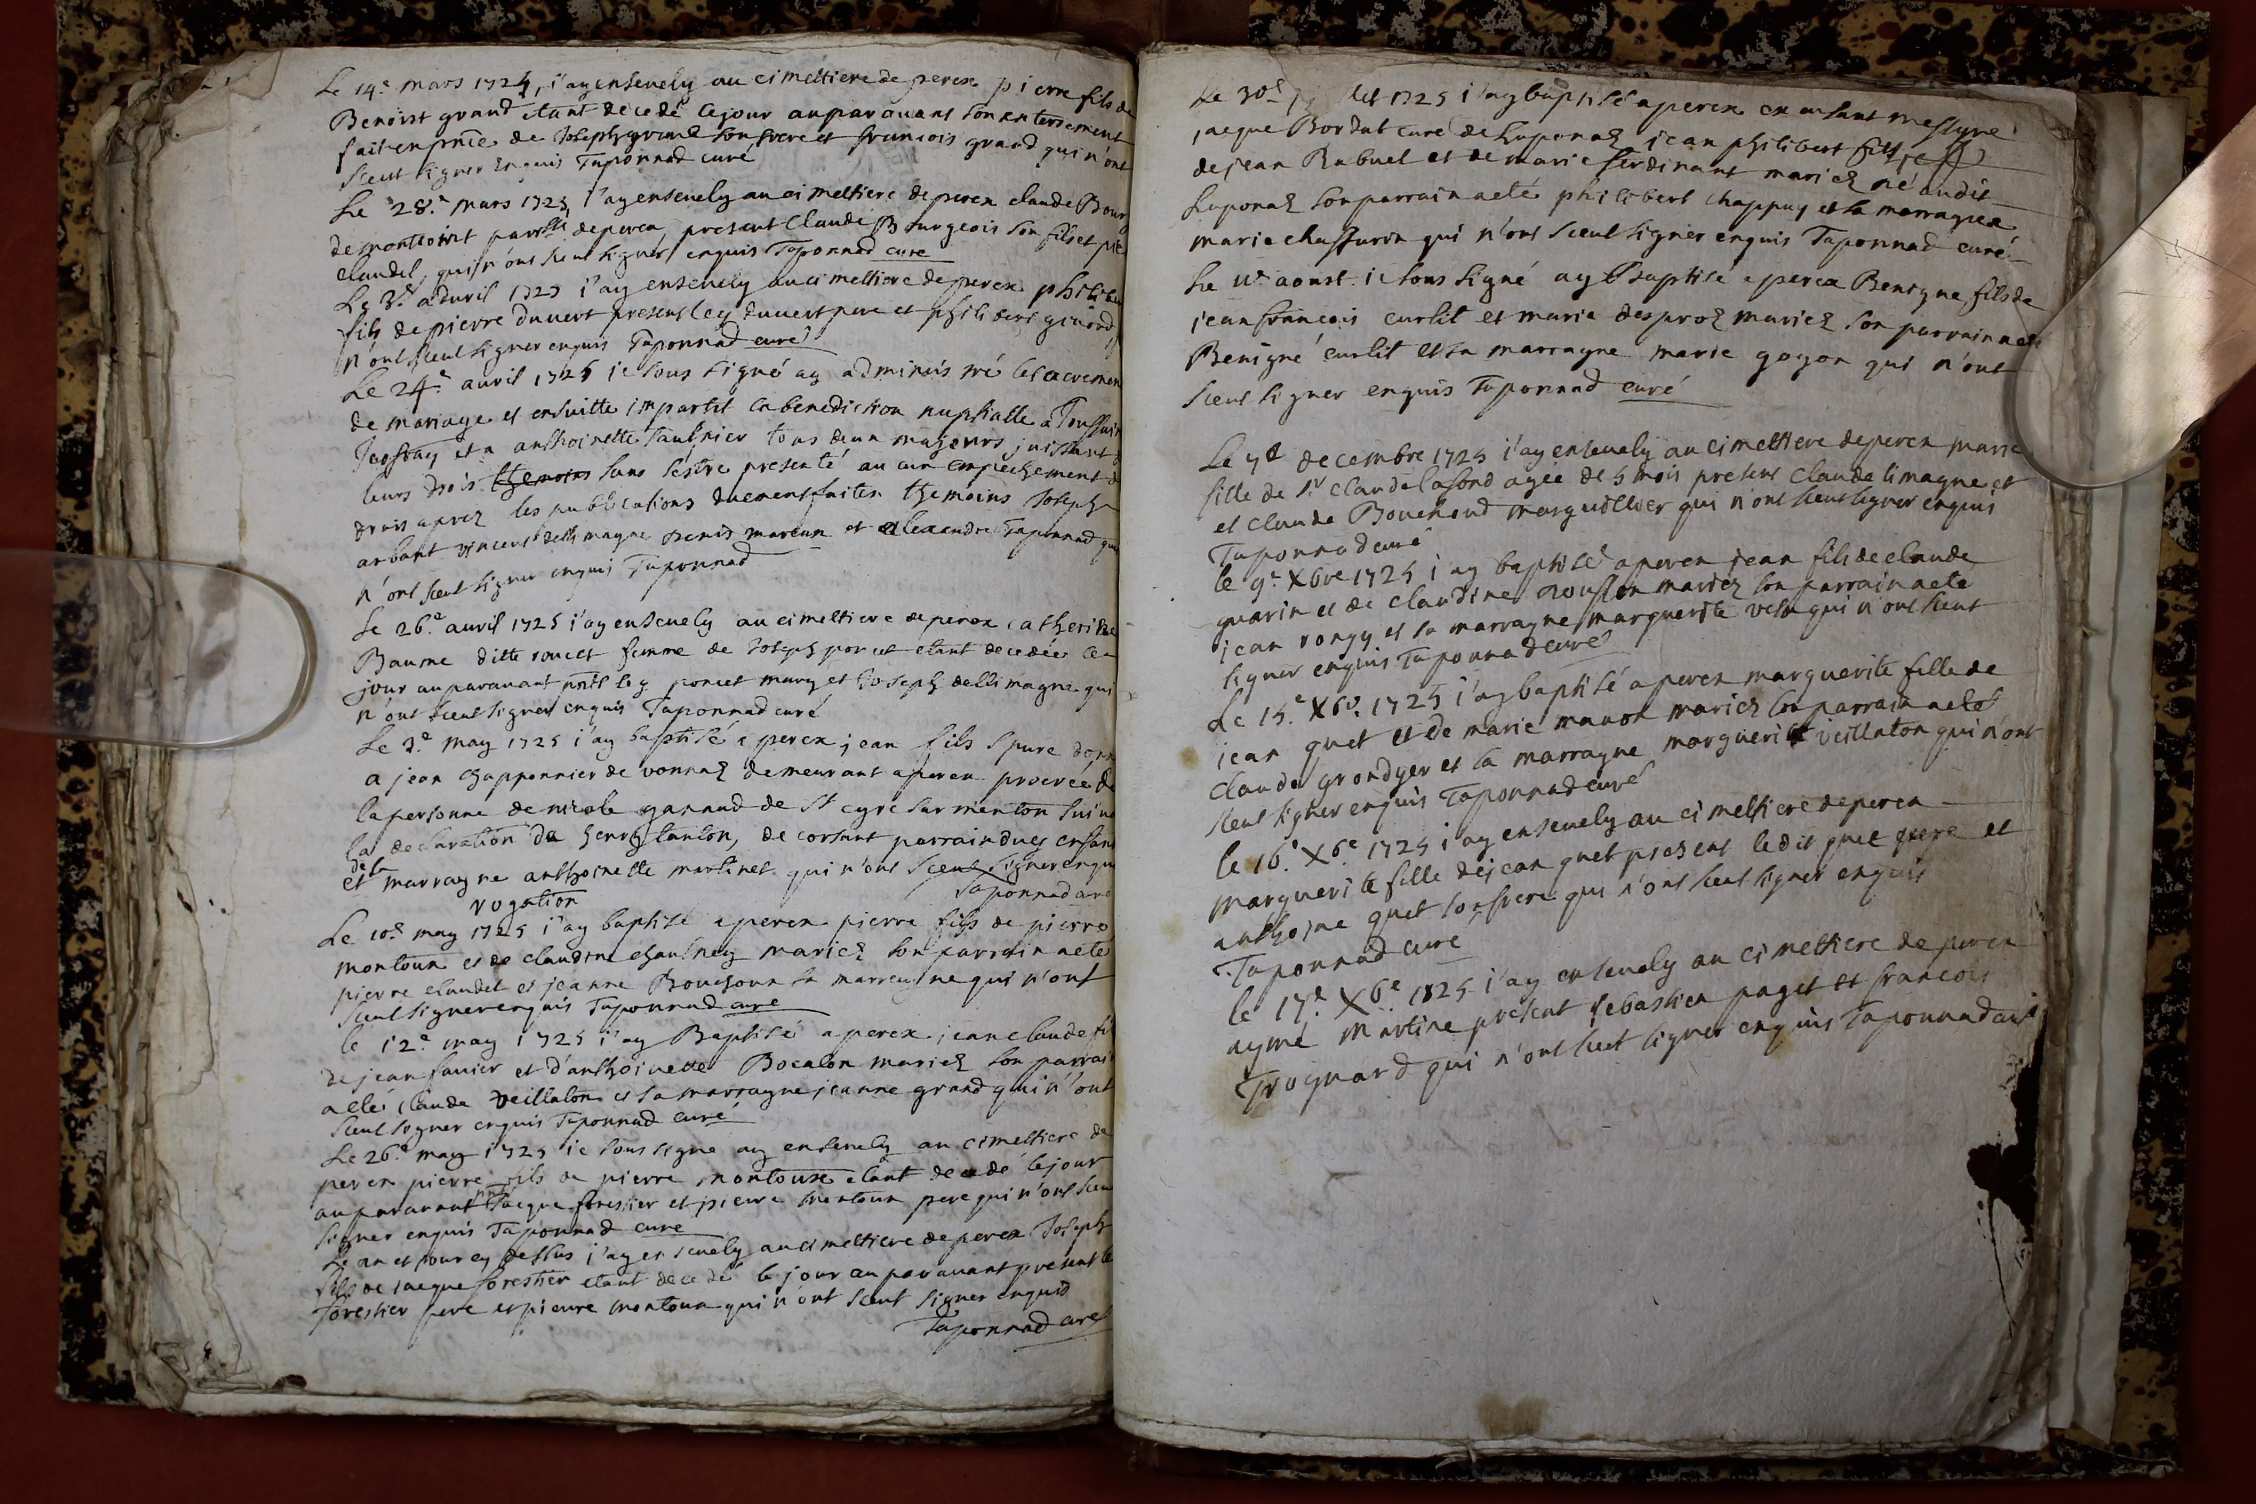 Le 14.e mars 1725, i'ay ensevely au cimeltiere de perex pierre fils de
Benoist grand etant decedé le jour auparavant son enterrement
fait en pnce de Joseph grand son frere et francois grand qui n'ont
sceut signer enquis Taponnad curé
Le 28.e mars 1725, i'ay ensevely au cimeltiere de perex claude Bourg
de montcoint parsse de perex, present Claude Bourgeois son fils et pre
claudel, qui n'ont sceut signer enquis Taponnad curé
Le 3.e advril 1725 i'ay ensevely au cimeltiere de perex philibe
fils de pierre Duvert present ley Duvert pere et philibert girard
n'ont sceut signer enquis Taponnad curé
Le 24.e avril 1725 ie sous signé ay administré le sacrement
de mariage et ensuitte impartit la benediction nuptialle a Toussain
et a anthoinette saulnier tous deux majeurs juissant d
leurs drois themoins sans s'estre presenté aucun empeschement d
drois aprez les publications duement faites themoins Joseph
arbant vincent dellimagne denis mareux et alexandre Taponnad qui
n'ont sceut signer enquis Taponnad
Le 26.e avril 1725 i'ay ensevely au cimeltiere de perex catherine
Baume ditte roncet femme de Joseph poncet etant decedée le
jour auparavant pnts ley poncet mary et Joseph dellimagne qui
n'ont sceut signer enquis Taponnad curé
Le 3.e may 1725 i'ay baptisé a perex jean fils spure donn
a jean chapponnier de vonnaz demeurant a perex procréé de
la personne de nicole ganaud de St cyre sur menton suiva
la declaration de henry tanton, de corsant parrain dudy enfan
de la
et marragne anthoinette martinet qui n'ont sceut signer enqui
rogation Taponnad curé
Le 10.e may 1725 i'ay baptisé a perex pierre fils de pierre
montoux et de claudine chaulney mariez son parrain a eté
pierre claudel et jeanne Bouchoux sa marragne qui n'ont
sceut signer enquis Taponnad curé
le 12.e may 1725 i'ay Baptisé a perex jean claude fil
de jean favier et d'anthoinette Bocalon mariez son parrai
a eté claude veillaton et sa marragne jeanne grand qui n'ont
sceut signer enquis Taponnad curé
Le 26.e may 1725 ie sous signé ay ensevely au cimeltiere de
perex pierre fils de pierre montoux etant decedé le jour
auparavant pnt Jacque forestier et pierre montoux pere qui n'ont sceu
signer enquis Taponnad curé
Le an et jour cy dessus i'ay ensevely au cimeltiere de perex Joseph
fils de jacque forestier etant decedé le jour auparavant present le
forestier pere et pierre montoux qui n'ont sceut signer enquis
Taponnad curé
Le 30.e 1725 i'ay baptisé a perex en absant messyre
jacque Bordat curé de Luponaz jean philibert fils
de jean Rabuel et de marie ferdinant mariez né audit
Luponaz son parrain a eté philibert chappuy et sa marragnea
marie chaffurin qui n'ont sceut signer enquis Taponnad curé
Le 11.e aoust ie sous signé ay Baptisé a perex Benigne fils de
jean francois curlit et marie desproz mariez son parrain a eté
Benigné curlit et sa marragne marie goyon qui n'ont
sceut signer enquis Taponnad curé
Le 7.e decembre 1725 i'ay ensevely au cimeltiere de perex marie
fille de Sr claude lafond agée de 5 mois present Claude limagne et
et claude Bouchoud marguillier qui n'ont sceut signer enquis
Taponnad curé
le 9.e Xbre 1725 i'ay baptisé a perex jean fils de claude
guarin et de claudine rousson mariez son parrain a eté
jean rongy et sa marragne marguerite velu qui n'ont sceut
signer enquis Taponnad curé
Le 15.e Xbe. 1725 i'ay baptisé a perex marguerite fille de
jean guet et de marie manon mariez son parrain a eté
claude grondyer et la marragne marguerite veillaton qui n'ont
sceut signer enquis Taponnad curé
le 16.e Xbe. 1725 i'ay ensevely au cimeltiere de perex
marguerite fille de jean guet present le dit guet pere et
anthoine guet son frere qui n'ont sceut signer enquis
Taponnad curé
le 17.e Xbe 1825 i'ay ensevely au cimeltiere de perex
aymé martine present sebastien paget et francois
Troguard qui n'ont sceut signer enquis Taponnad curé